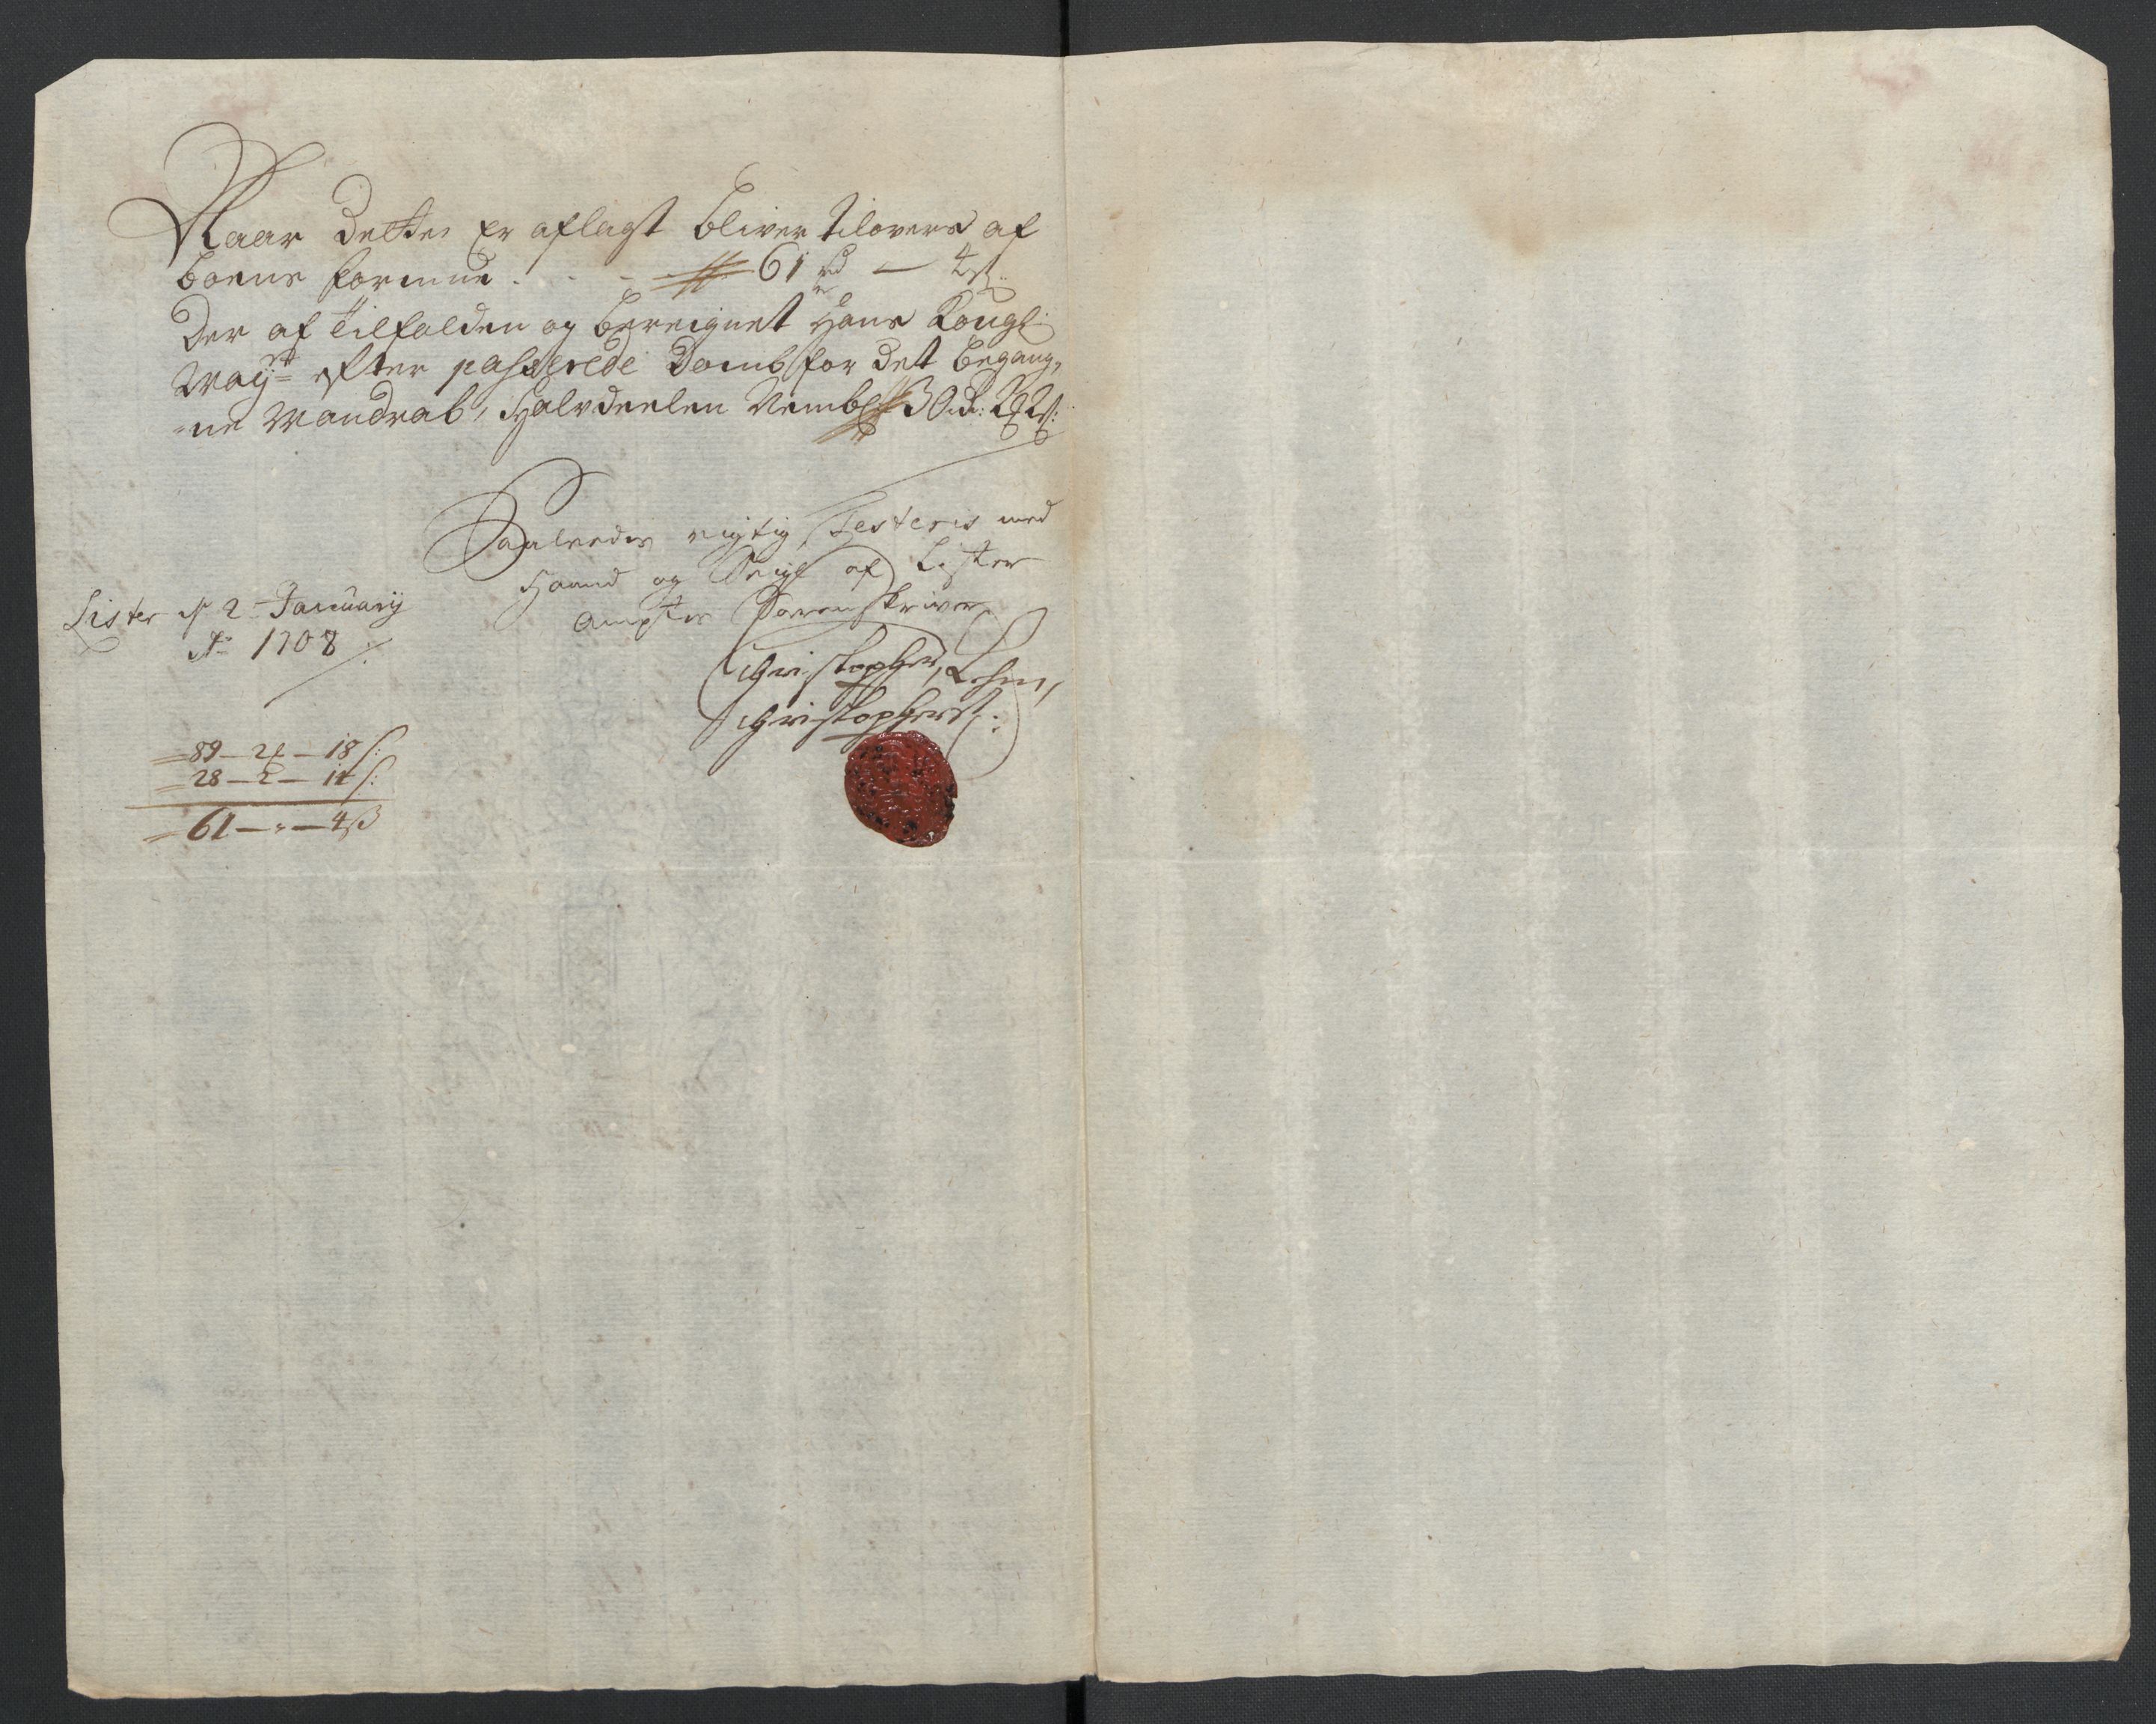 Naar dette er aflagt bliver tilovers af
boens formue . . . 61 rd — 4 s:
Der af tilfalden og bereignet Hans Kongl:
Mayt: efter passerede Domb for det begang,
-ne Mandrab, Halvdeelen Nembl: 30 rd: 2 ₰ 2 s:
Saaledes rigtig Testeris med
Haand og Seigl af Lister
Ampter Sorenskriver
Christopher, Lehm,
Christophers:
Lister d 2 January
Ao 1708
89 — 2 ₰ — 18 s:
28 — 2 — 14 s:
61 — " — 4 ß